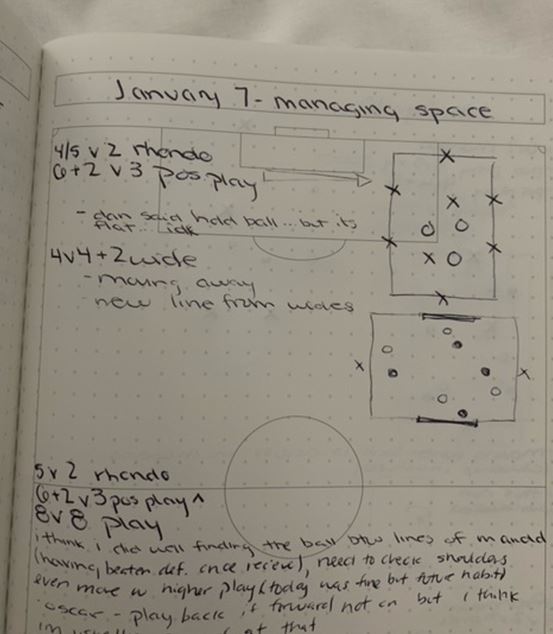 January 7 - managing space
4/5 v 2 rhondo
6+2 v 3 pos play
- dan said hold ball... but its
flat... idk
4v4 + 2 wide
- moving away
new line from wides
5v2 rhondo
6+2 v 3 pos play ^
8v8 play
i think i did well finding the ball btw lines of
(having beaten def. once recieve), need to check shoulders
even more w higher play (today was fine but future habit)
oscar - play back if forward not on but i think
im at that